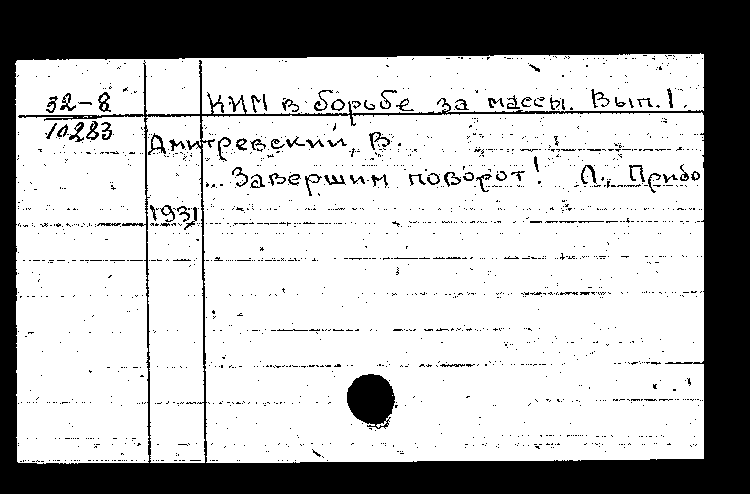 32-8
10283
КИМ в борьбе за массы. Вып. 1.
Дмитревский, В.
... Завершим поворот! Л., Прибо
1931